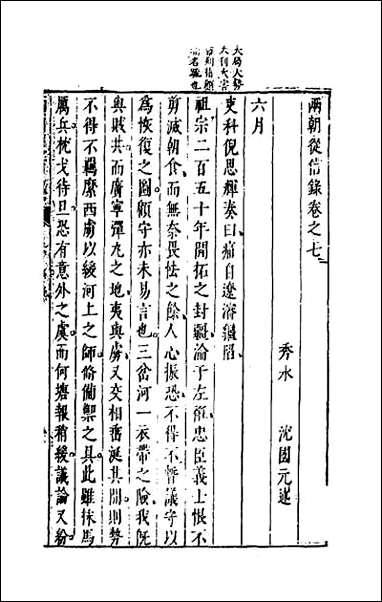 兩朝從信錄卷之七
秀水 沈國元述
六月
吏科倪思輝奏曰痛自遼瀋繼陷
祖宗二百五十年開拓之封疆淪于左衽忠臣義士恨不
剪滅朝食而無奈畏怯之餘人心振恐不得不暫議守以
為恢復之圖顧守亦未易言也三岔河一衣帶之險我既
與賊共而廣寧彈丸之地夷與虜又交相垂涎其間則勢
不得不羈縻西虜以緩河上之師脩備禦之具此雖秣馬
厲兵枕戈待旦恐有意外之虞而何搪報稍緩議論又紛
大局大勢